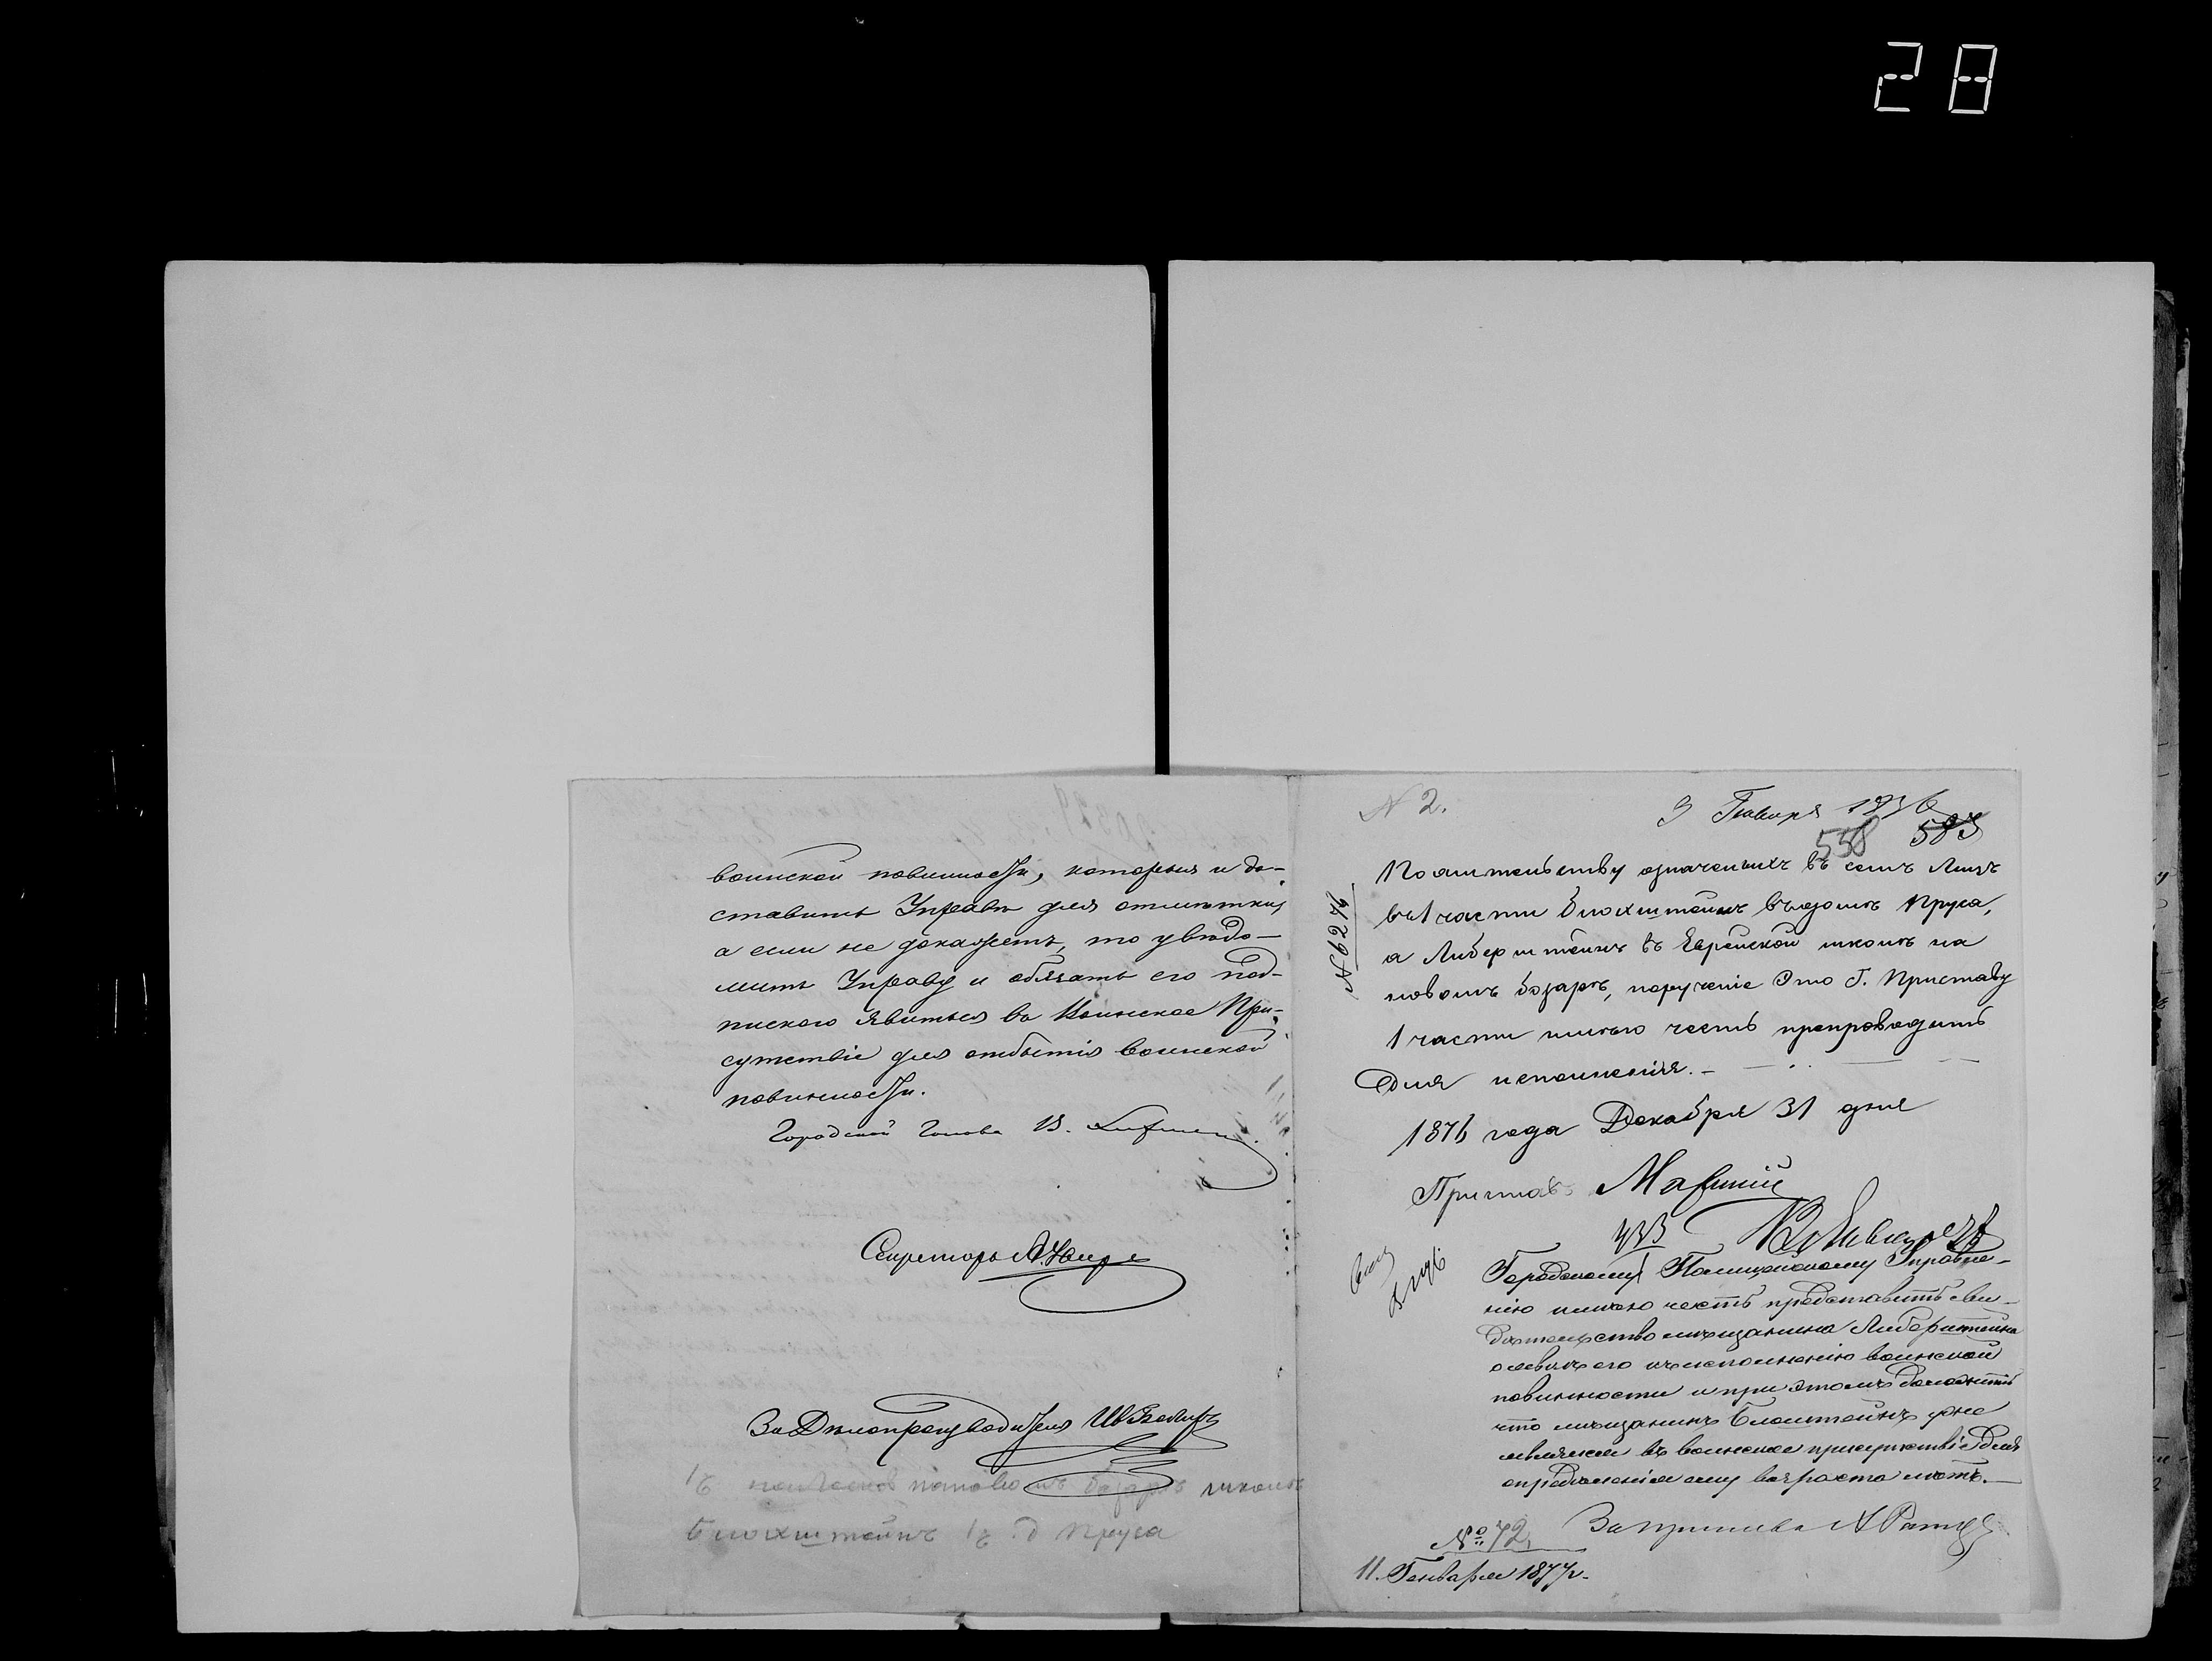 28
воинской повинности, которыя и до-
ставить Управѣ для отмѣтки,
а если не докажетъ, то увѣдо-
мить Управу и обязать его под-
пискою явиться въ Воинское При-
сутствіе для отбытія воинской
повинности.
Городской Голова В.
Секретарь А.
За Дѣлопроизводителя
школѣ
Блохштейнъ 1 ч. д Пруса
N 2.
9 Генваря
558 583
№ 6276
По жительству означенныхъ въ семъ лицъ
въ 1 части Блохштейнъ въ домѣ Пруса,
а Либерштейнъ въ Еврейской школѣ на
новомъ базарѣ, порученіе это Г. Приставу
1 части имѣю честь препроводить
для исполненія.
1876 года Декабря 31 дня
Приставъ
Городскому Полицейскому Управле-
нію имѣю честь представить сви-
дѣтельство мѣщанина Либерштейна
о явкѣ его къ исполненію воинской
повинности и при этомъ доложить
что мѣщанинъ Блоштейнъ уже
являлся въ воинское присутствіе для
опредѣленія ему возраста лѣтъ.
За пристава
№ 72
11. Генваря 1877 г.